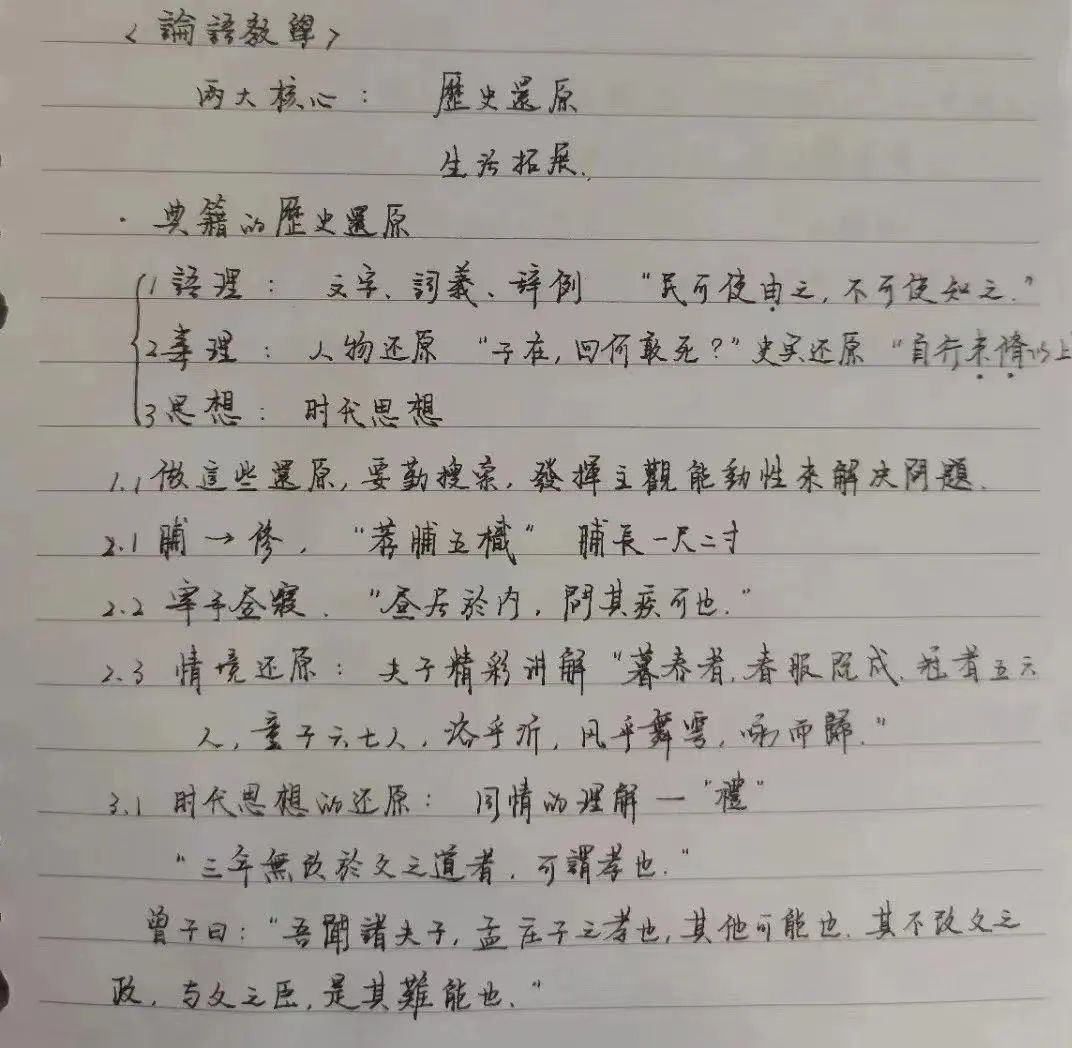 〈論語教學〉
兩大核心： 歷史還原
生活拓展.
· 典籍的歷史還原
1 語理： 文字、詞義、辞例 “民可使由之, 不可使知之.”
2 事理： 人物还原 “子在, 回何敢死?” 史实还原 “自行束脩以上
3 思想： 时代思想
1.1 做這些還原, 要勤搜索, 發揮主觀能動性来解决問題.
2.1 脯 → 修, “荐脯五樴” 脯長一尺二寸
2.2 宰予昼寢. “昼居於内, 問其疾可也.”
2.3 情境还原： 夫子精彩讲解 “暮春者, 春服既成, 冠者五六
人, 童子六七人, 浴乎沂, 风乎舞雩, 咏而歸.”
3.1 时代思想的还原： 同情的理解 — “禮”
“三年無改於父之道者, 可謂孝也.”
曾子曰：“吾聞諸夫子, 孟庄子之孝也, 其他可能也. 其不改父之
政, 与父之臣, 是其難能也.”